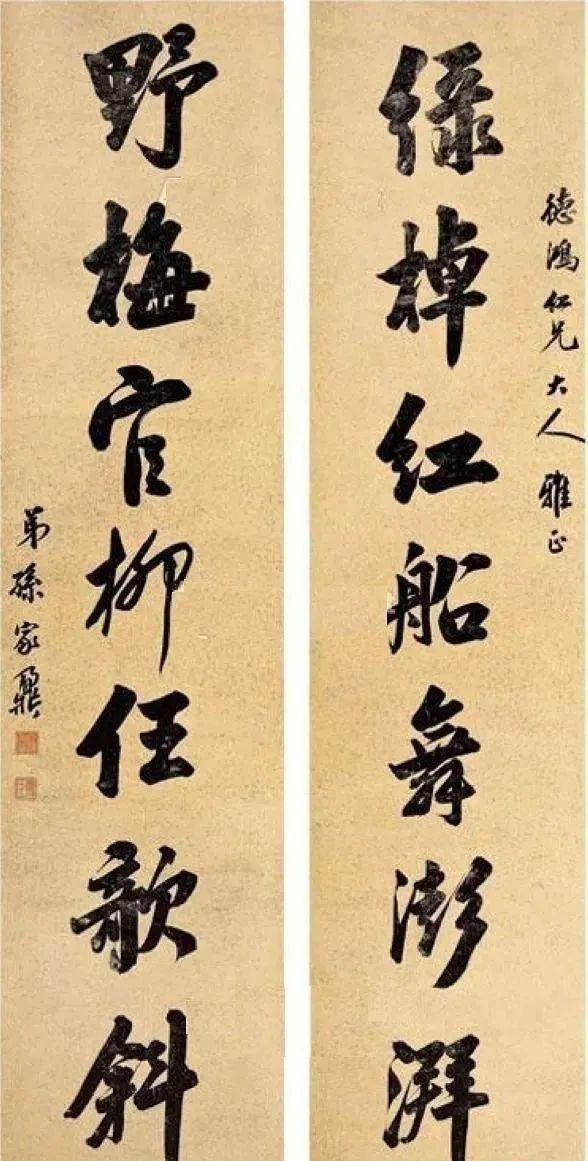 德鴻仁兄大人雅正
綠棹紅船舞澎湃
野梅官柳任欹斜
弟孫家鼐